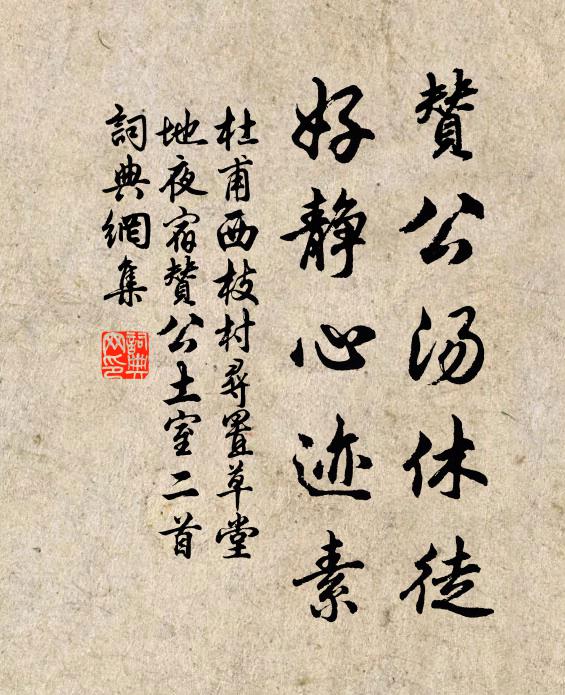 赞公汤休徒
好静心迹素
杜甫西枝村尋置草堂
地夜宿赞公土室二首
詞典網集
詞典网印